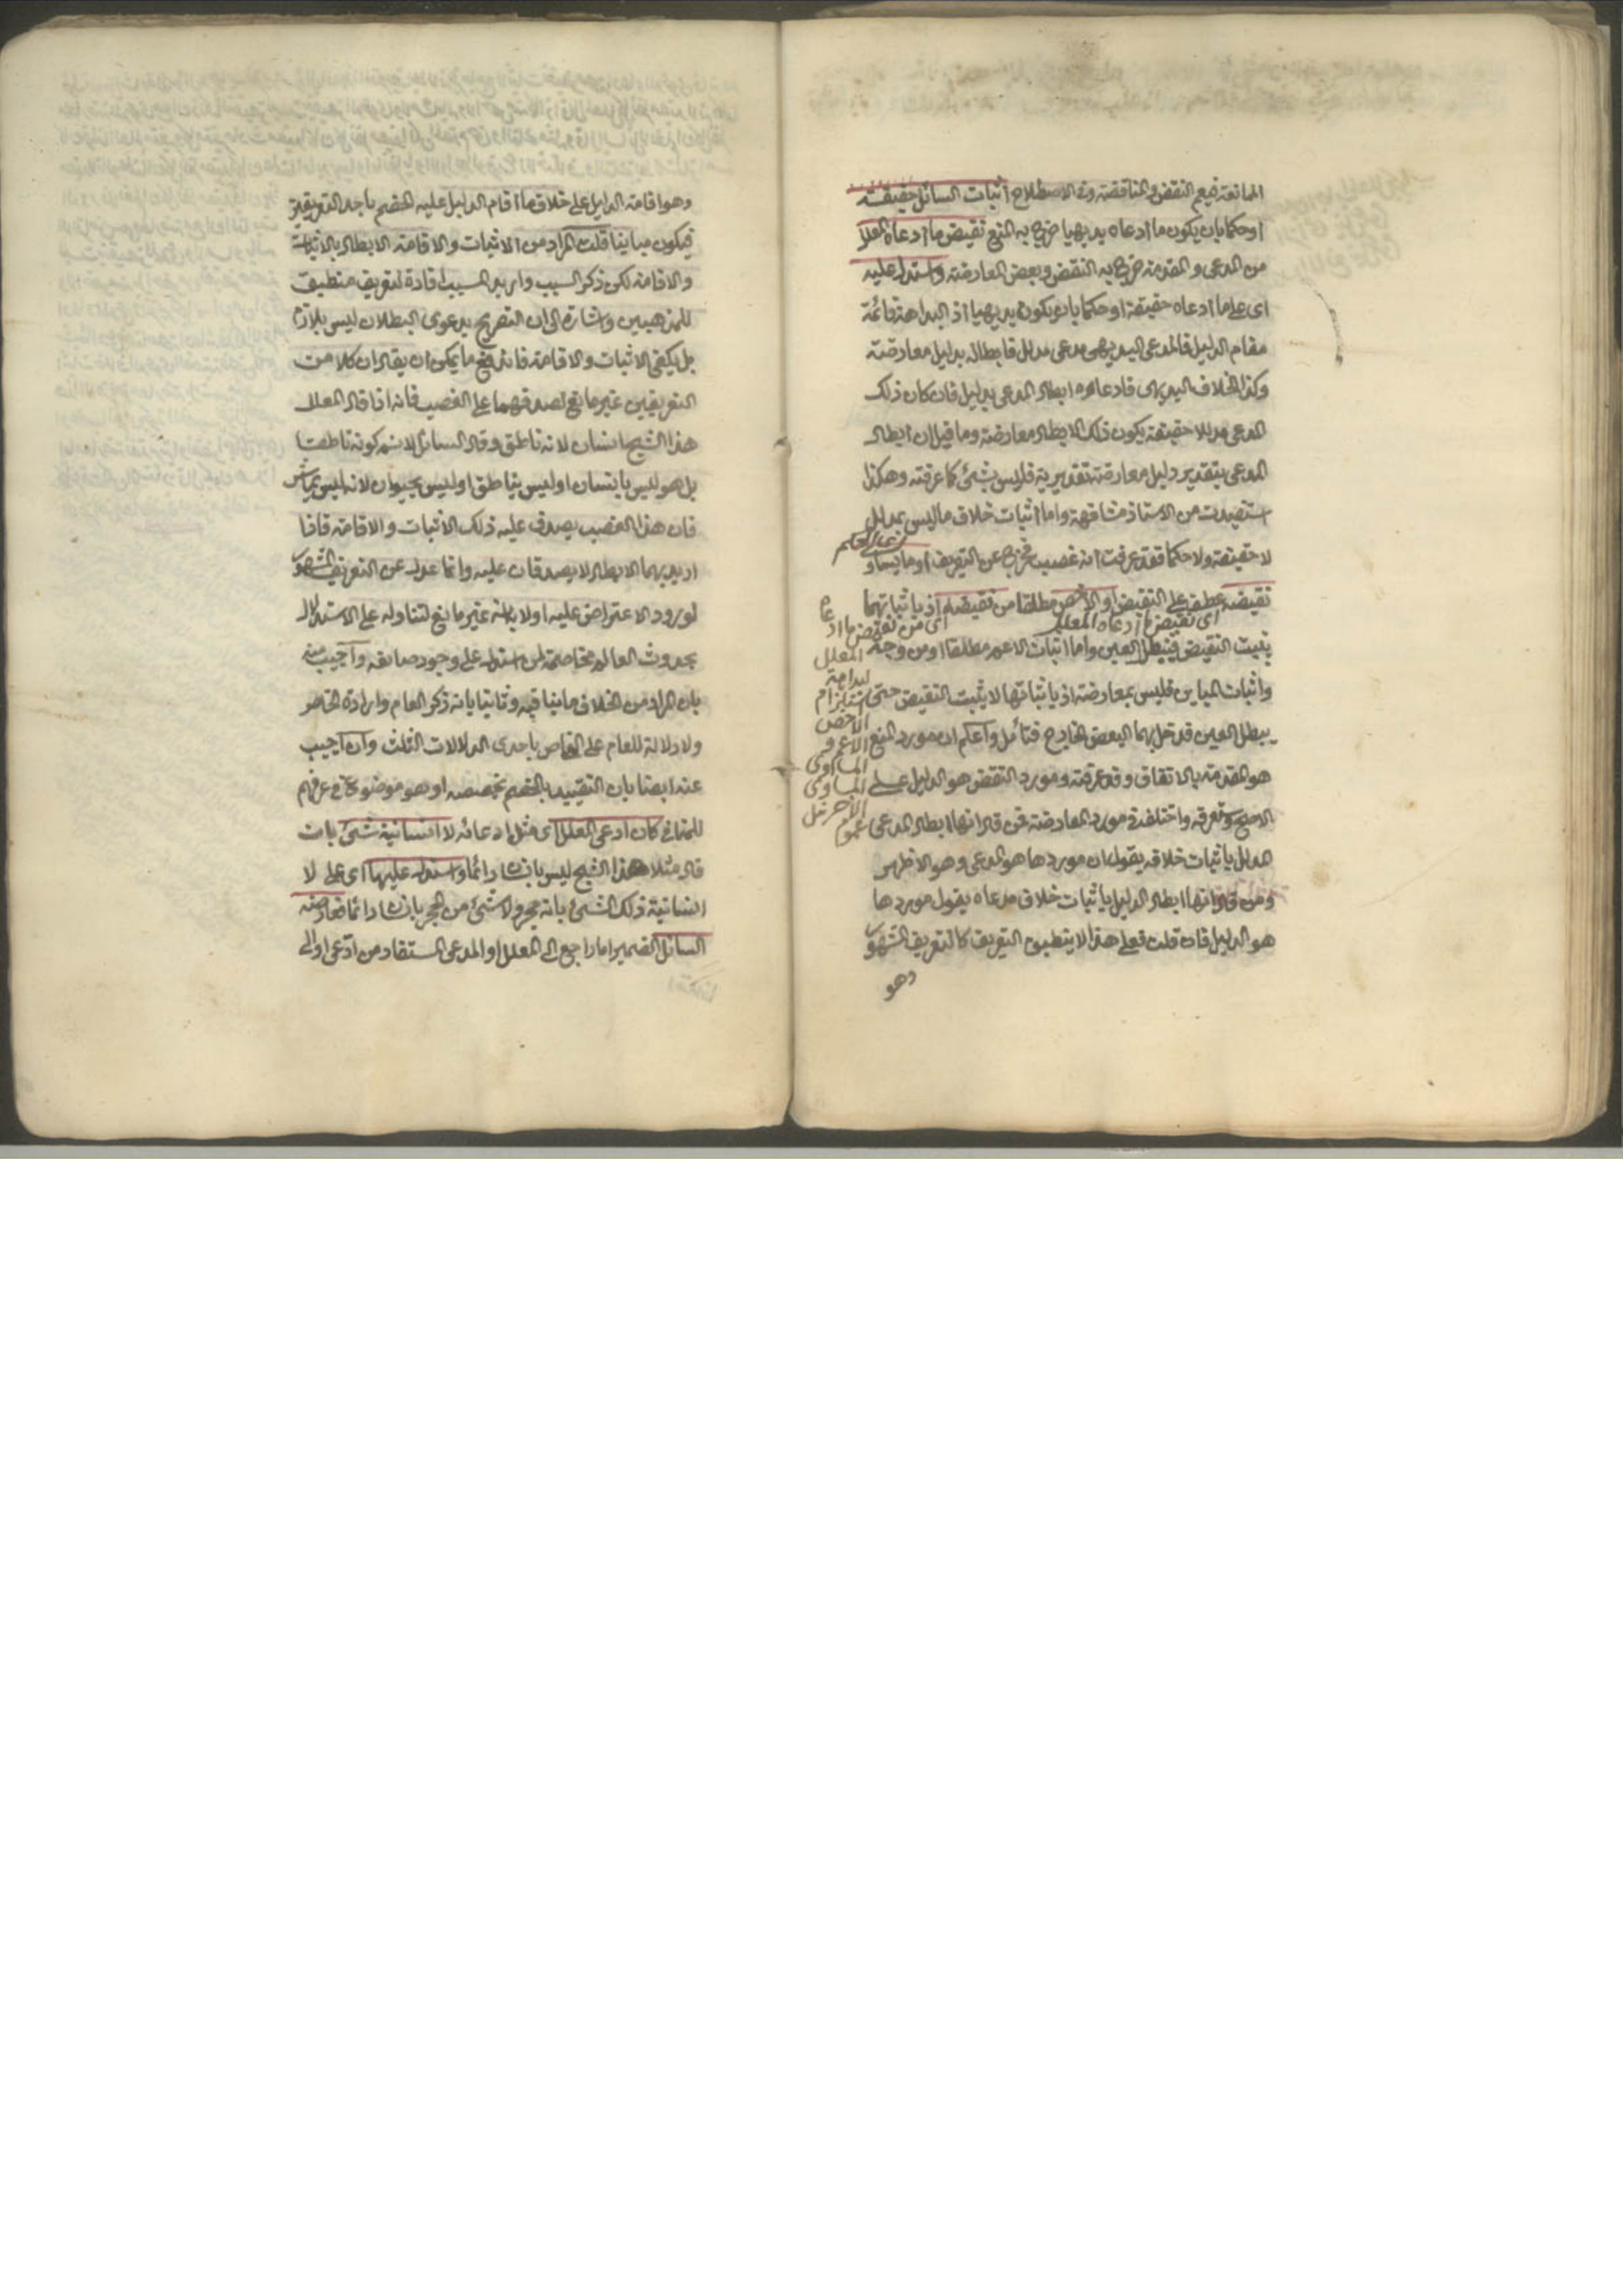 الممانعة فيعم النقض والمناقضة وفي الاصطلاح اثبات السائل حقيقة
او حكما بان يكون ما ادعاه بديهيا خرج به المنع نقيض ما ادعاه المعلل
من المدعى والمقدمة خرج به النقض وبعض المعارضة واستدل عليه
اى على ما ادعاه حقيقة او حكما بان يكون بديهيا اذ البداهة قائمة
مقام الدليل فالمدعى البديهى مدعى مدلل فابطاله بدليل معارضة
وكذا الخلاف البديهى فادعاؤه ابطال المدعى بدليل فان كان ذلك
المدعى مدللا حقيقة يكون ذلك الابطال معارضة وما قيل ان ابطال
المدعى بتقدير دليل معارضة تقديرية فليس بشئ كما عرفته وهكذا
استفيدت من الاستاذ مشافهة واما اثبات خلاف ما ليس بمدلل
لا حقيقة ولا حكما فقد عرفت انه غصب خرج عن التعريف او ما يساوى
نقيضه عطف على النقيض او الاخص مطلقا من نقيضه اذ باثباتهما
اى نقيض ما ادعاه المعلل
اى من نقيض ما ادعاه
المعلل
يثبت النقيض فيبطل العين واما اثبات الاعم مطلقا او من وجه
واثبات المباين فليس بمعارضة اذ باثباتها لا يثبت النقيض حتى
لبداهة
استلزام
الاخص
الاعم و
المساوى
المساوى
يبطل العين فدخل بهما البعض الخارج فتأمل واعلم ان مورد المنع
هو المقدمة بالاتفاق وقد عرفته ومورد النقض هو الدليل على
الاصح وتعرفه واختلف في مورد المعارضة فمن قال انها ابطال المدعى
المدلل باثبات خلافه يقول ان موردها هو المدعى وهو الاظهر
ومن قال انها ابطال الدليل باثبات خلاف مدعاه يقول موردها
هو الدليل فان قلت فعلى هذا لا ينطبق التعريف كالتعريف المشهور
وهو
وهو اقامة الدليل على خلاف ما اقام الدليل عليه الخصم باحد التعريفين
فيكون مباينا قلت المراد من الاثبات والاقامة الابطال بالاثبات
والاقامة لكن ذكر السبب واريد المسبب افادة لتعريف منطبق
للمذهبين واشارة الى ان التصريح بدعوى البطلان ليس بلازم
بل يكفى الاثبات والاقامة فاندفع ما يمكن ان يقال ان كلا من
التعريفين غير مانع لصدقهما على الغصب فانه اذا قال المعلل
هذا الشبح انسان لانه ناطق وقال السائل لا نسلم كونه ناطقا
بل هو ليس بانسان او ليس بناطق او ليس بحيوان لانه ليس بماش
فان هذا الغصب يصدق عليه ذلك الاثبات والاقامة فاذا
اريد بهما الابطال لا يصدقان عليه وانما عدل عن التعريف المشهور
لورود الاعتراض عليه اولا بانه غير مانع لتناوله على الاستدلال
بحدوث العالم مخاصمة لمن استدل على وجود صانعه واجيب عنه
بان المراد من الخلاف ما ينافيه وثانيا بانه ذكر العام وارادة الخاص
ولا دلالة للعام على الخاص باحدى الدلالات الثلث وان اجيب
عنه ايضا بان التقييد بالخصم يخصصه او هو موضوع في عرفهم
للمنافى كأن ادعى المعلل اى مثل ادعائه لا انسانية شئ بان
قال مثلا هذا الشبح ليس بانسان دائما واستدل عليها اى على لا
انسانية ذلك الشئ بانه حجر ولا شئ من الحجر بانسان دائما فعارضه
السائل الضمير اما راجع الى المعلل او المدعى المستفاد من ادعى او الى